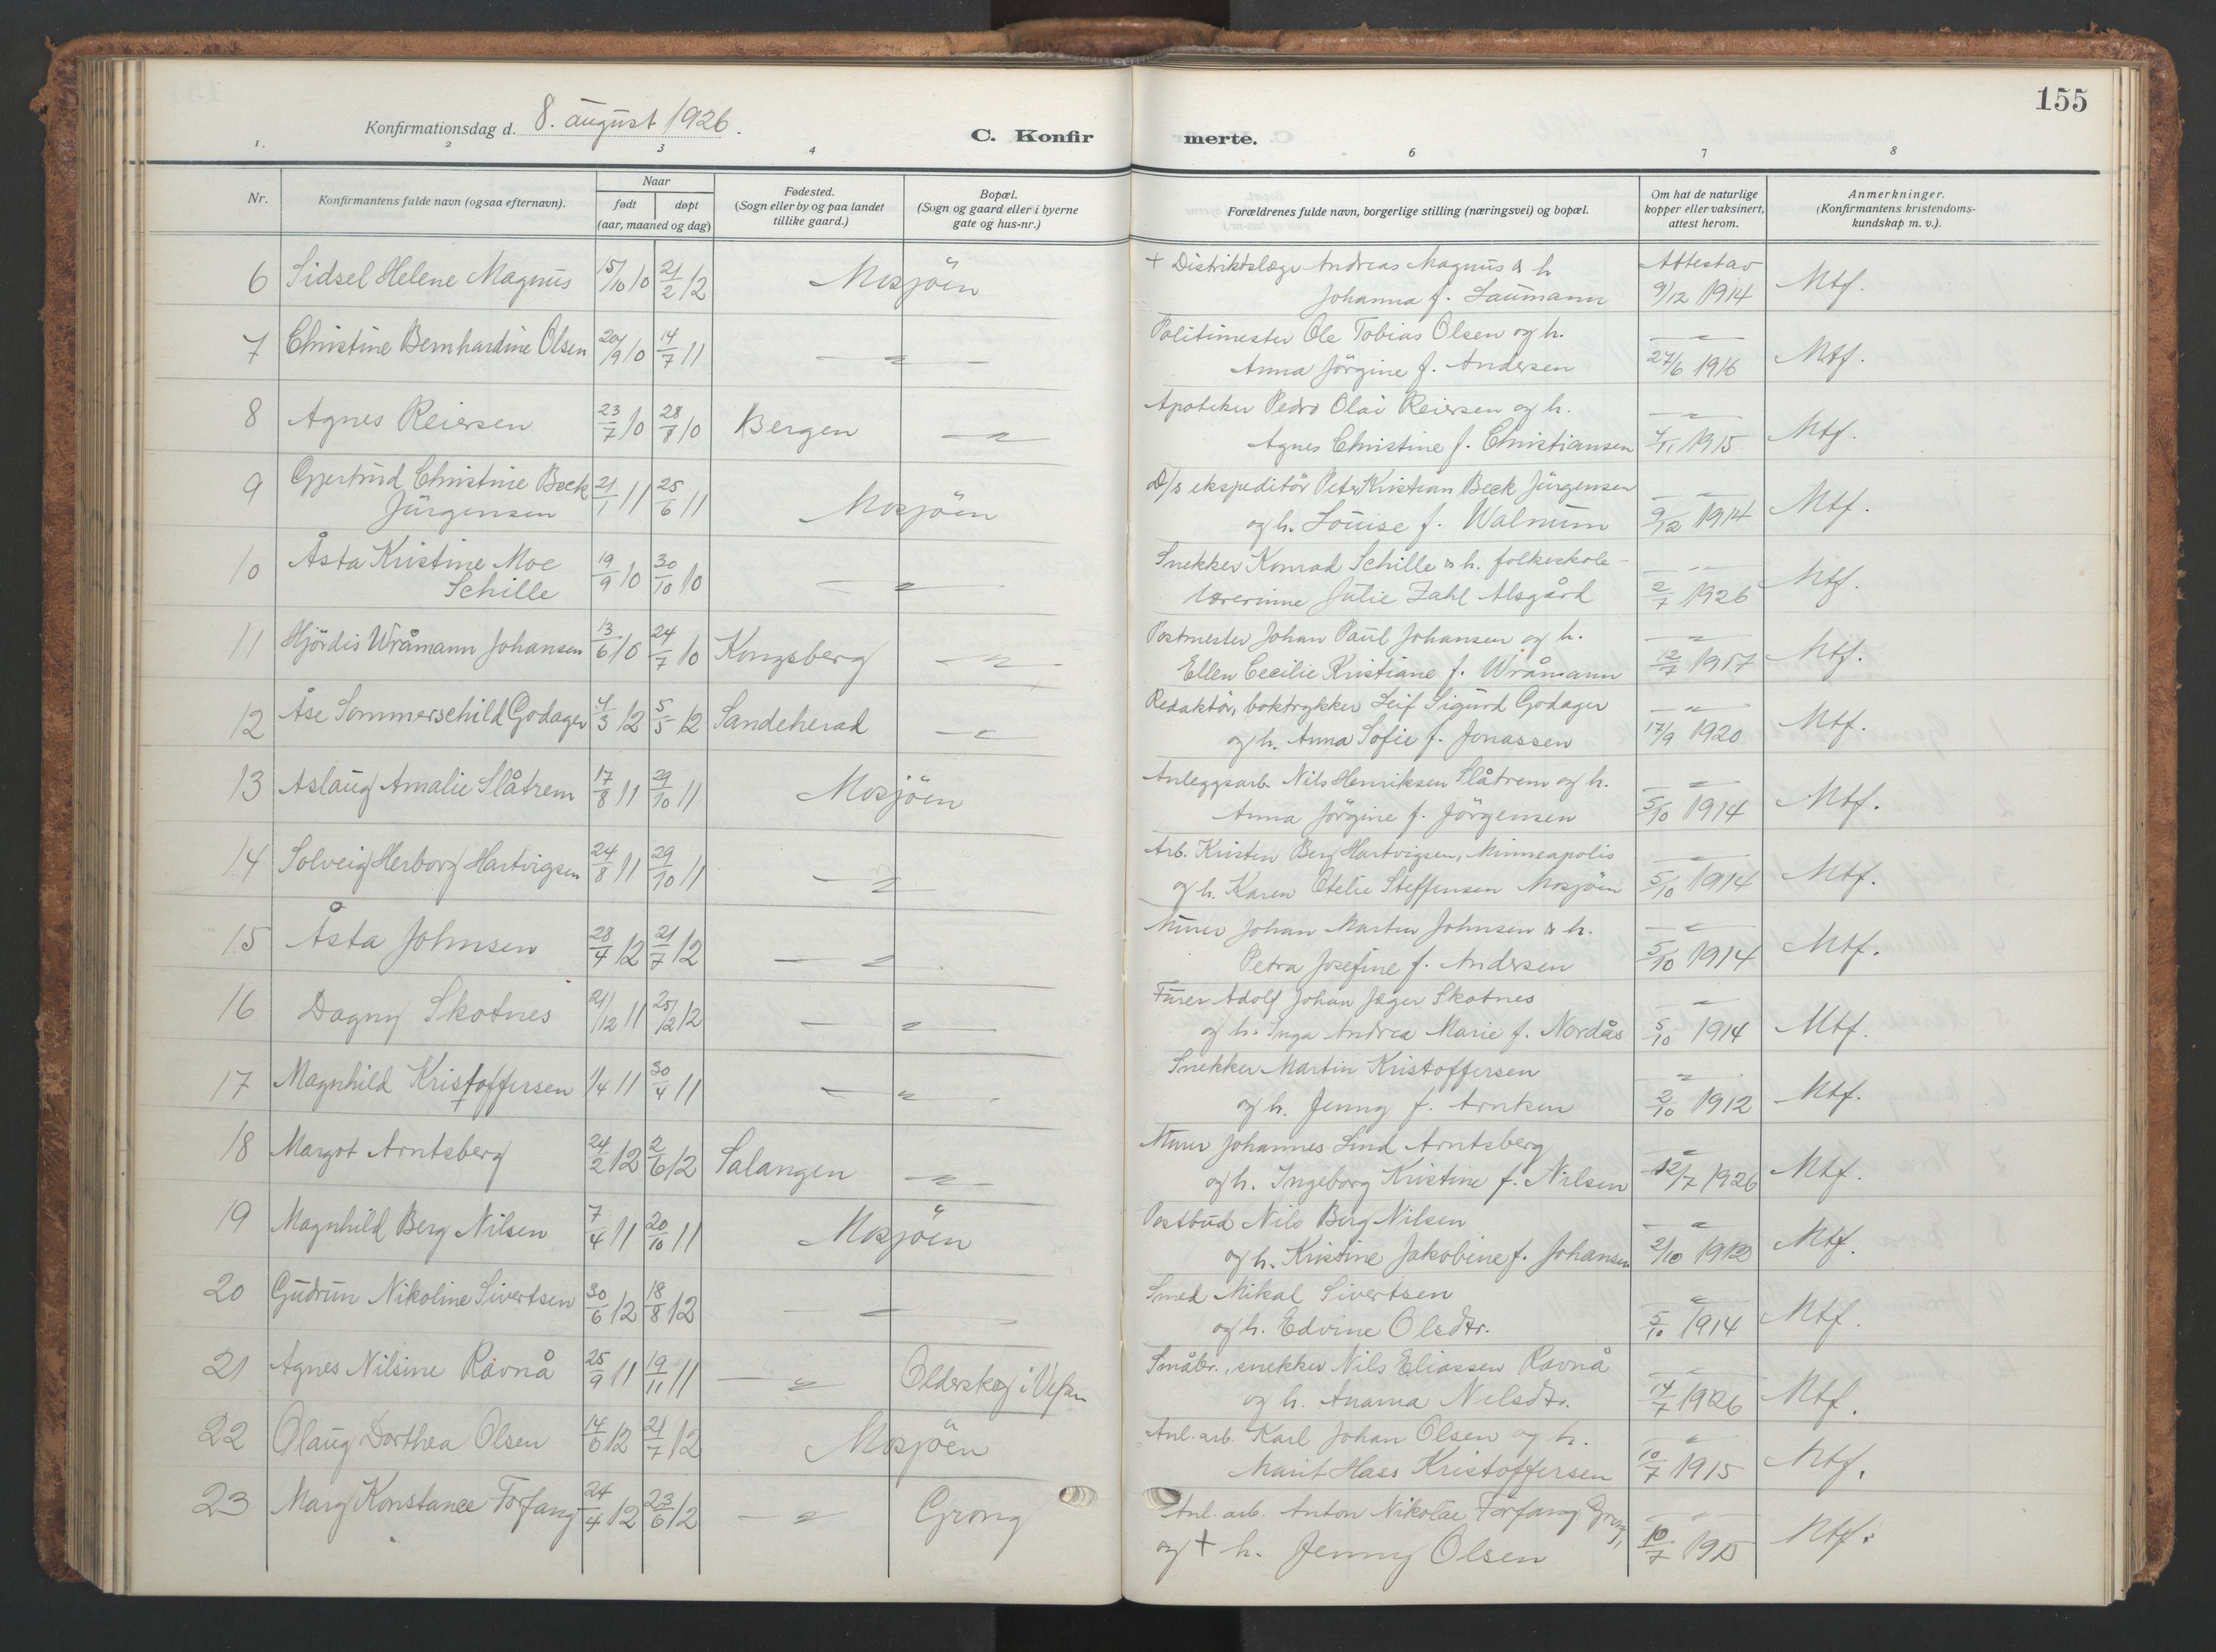 155
Konfirmationsdag d. 8. august 1926.
C. Konfir
merte.
1. 2 3 4 6 7 8
Nr.
Konfirmantens fulde navn (ogsaa efternavn).
Naar
født døpt
(aar, maaned og dag)
Fødested.
(Sogn eller by og paa landet
tillike gaard.)
Bopæl.
(Sogn og gaard eller i byerne
gate og hus-nr.)
Forældrenes fulde navn, borgerlige stilling (næringsvei) og bopæl.
Om hat de naturlige
kopper eller vaksinert,
attest herom.
Anmerkninger.
(Konfirmantens kristendoms-
kundskap m. v.).
6 Sidsel Helene Magnus 15/10 10 21/2 12 Mosjöen + Distriktslæge Andreas Magnus & h Attest av
Johanna f. Laumann 9/12 1914 Mtf.
7 Christine Bernhardine Olsen 20/9 10 14/7 11 — " — Politimester Ole Tobias Olsen og h. — " —
Anna Jörgine f. Andersen 27/6 1916 Mtf.
8 Agnes Reiersen 23/7 10 28/8 10 Bergen — " — Apoteker Pedro Olai Reiersen og h. — " —
Agnes Christine f. Christiansen 1915 Mtf.
9 Gjertrud Christine Beck 21/1 11 25/6 11 Mosjöen D/s ekspeditör Peter Kristian Beck Jürgensen — " —
Jürgensen og h. Louise f. Walnum 9/12 1914 Mtf.
10 Åsta Kristine Moe 19/9 10 30/10 10 — " — Snekker Konrad Schille & h. folkeskole- — " —
Schille lærerinne Julie Zahl Alsgård 2/7 1926 Mtf.
11 Hjördis Wråmann Johansen 13/6 10 24/7 10 Kongsberg — " — Postmester Johan Paul Johansen og h. — " —
Ellen Cecilie Kristiane f. Wråmann 12/7 1917 Mtf.
12 Åse Sommerschild Godager 4/3 12 5/5 12 Sandeherad — " — Redaktör, boktrykker Leif Sigurd Godager — " —
og h. Anna Sofie f. Jonassen 17/9 1920 Mtf.
13 Aslaug Amalie Slåtrem 17/8 11 29/10 11 Mosjöen Anleggsarb. Nils Henriksen Slåtrem og h. — " —
Anna Jörgine f. Jörgensen 5/10 1914 Mtf.
14 Solveig Herborg Hartvigsen 24/8 11 29/10 11 — " — Arb. Kristen Berg Hartvigsen, Minneapolis — " —
og h. Karen Otelie Steffensen Mosjöen 5/10 1914 Mtf.
15 Åsta Johnsen 28/4 12 21/7 12 — " — Murer Johan Martin Johnsen & h. — " —
Petra Josefine f. Andersen 5/10 1914 Mtf.
16 Dagny Skotnes 21/12 11 25/2 12 — " — Furer Adolf Johan Jæger Skotnes — " —
og h. Inga Andrea Marie f. Nordås 5/10 1914 Mtf.
17 Magnhild Kristoffersen 1/4 11 30/4 11 — " — Snekker Martin Kristoffersen "
og h. Jenny f. Arntsen 2/10 1912 Mtf.
18 Margot Arntsberg 24/2 12 2/6 12 Salangen — " — Murer Johannes Lind Arntsberg "
og h. Ingeborg Kristine f. Nilsen 12/7 1926 Mtf.
19 Magnhild Berg Nilsen 7/4 11 20/10 11 Mosjöen Postbud Nils Berg Nilsen — " —
og h. Kristine Jakobine f. Johansen 2/10 1912 Mtf.
20 Gudrun Nikoline Sivertsen 30/6 12 18/8 12 — " — Smed Mikal Sivertsen "
og h. Edvine Olsdtr. 5/10 1914 Mtf.
21 Agnes Nilsine Ravnå 25/9 11 19/11 11 — " — Olderskog i Vefsn Småbr., snekker Nils Eliassen Ravnå "
og h. Anania Nilsdtr. 14/7 1926 Mtf.
22 Olaug Dorthea Olsen 14/6 12 21/7 12 Mosjöen Anl. arb. Karl Johan Olsen og h. "
Marit Haes Kristoffersen 10/7 1915 Mtf.
23 Mary Konstance Forfang 24/4 12 23/6 12 — " — Grong Anl. arb. Anton Nikolai Forfang, Grong, "
og + h. Jenny Olsen 10/7 1915 Mtf.